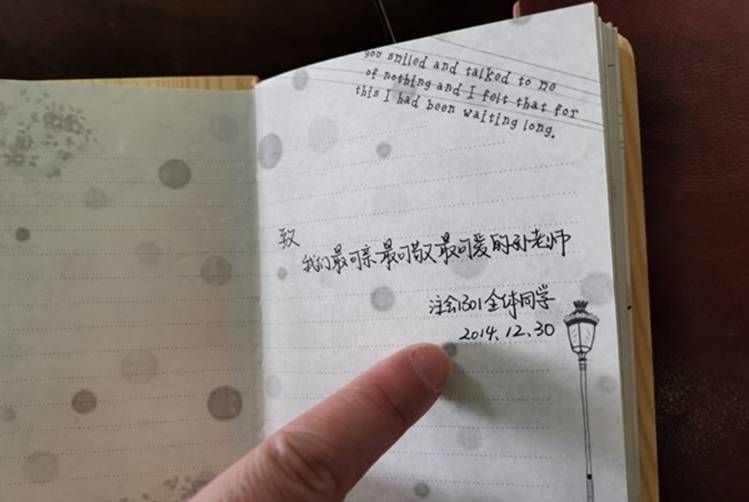 you smiled and talked to me
of nothing and I felt that for
this I had been waiting long.
致
我们最可亲最可敬最可爱的孙老师
注会1301全体同学
2014.12.30